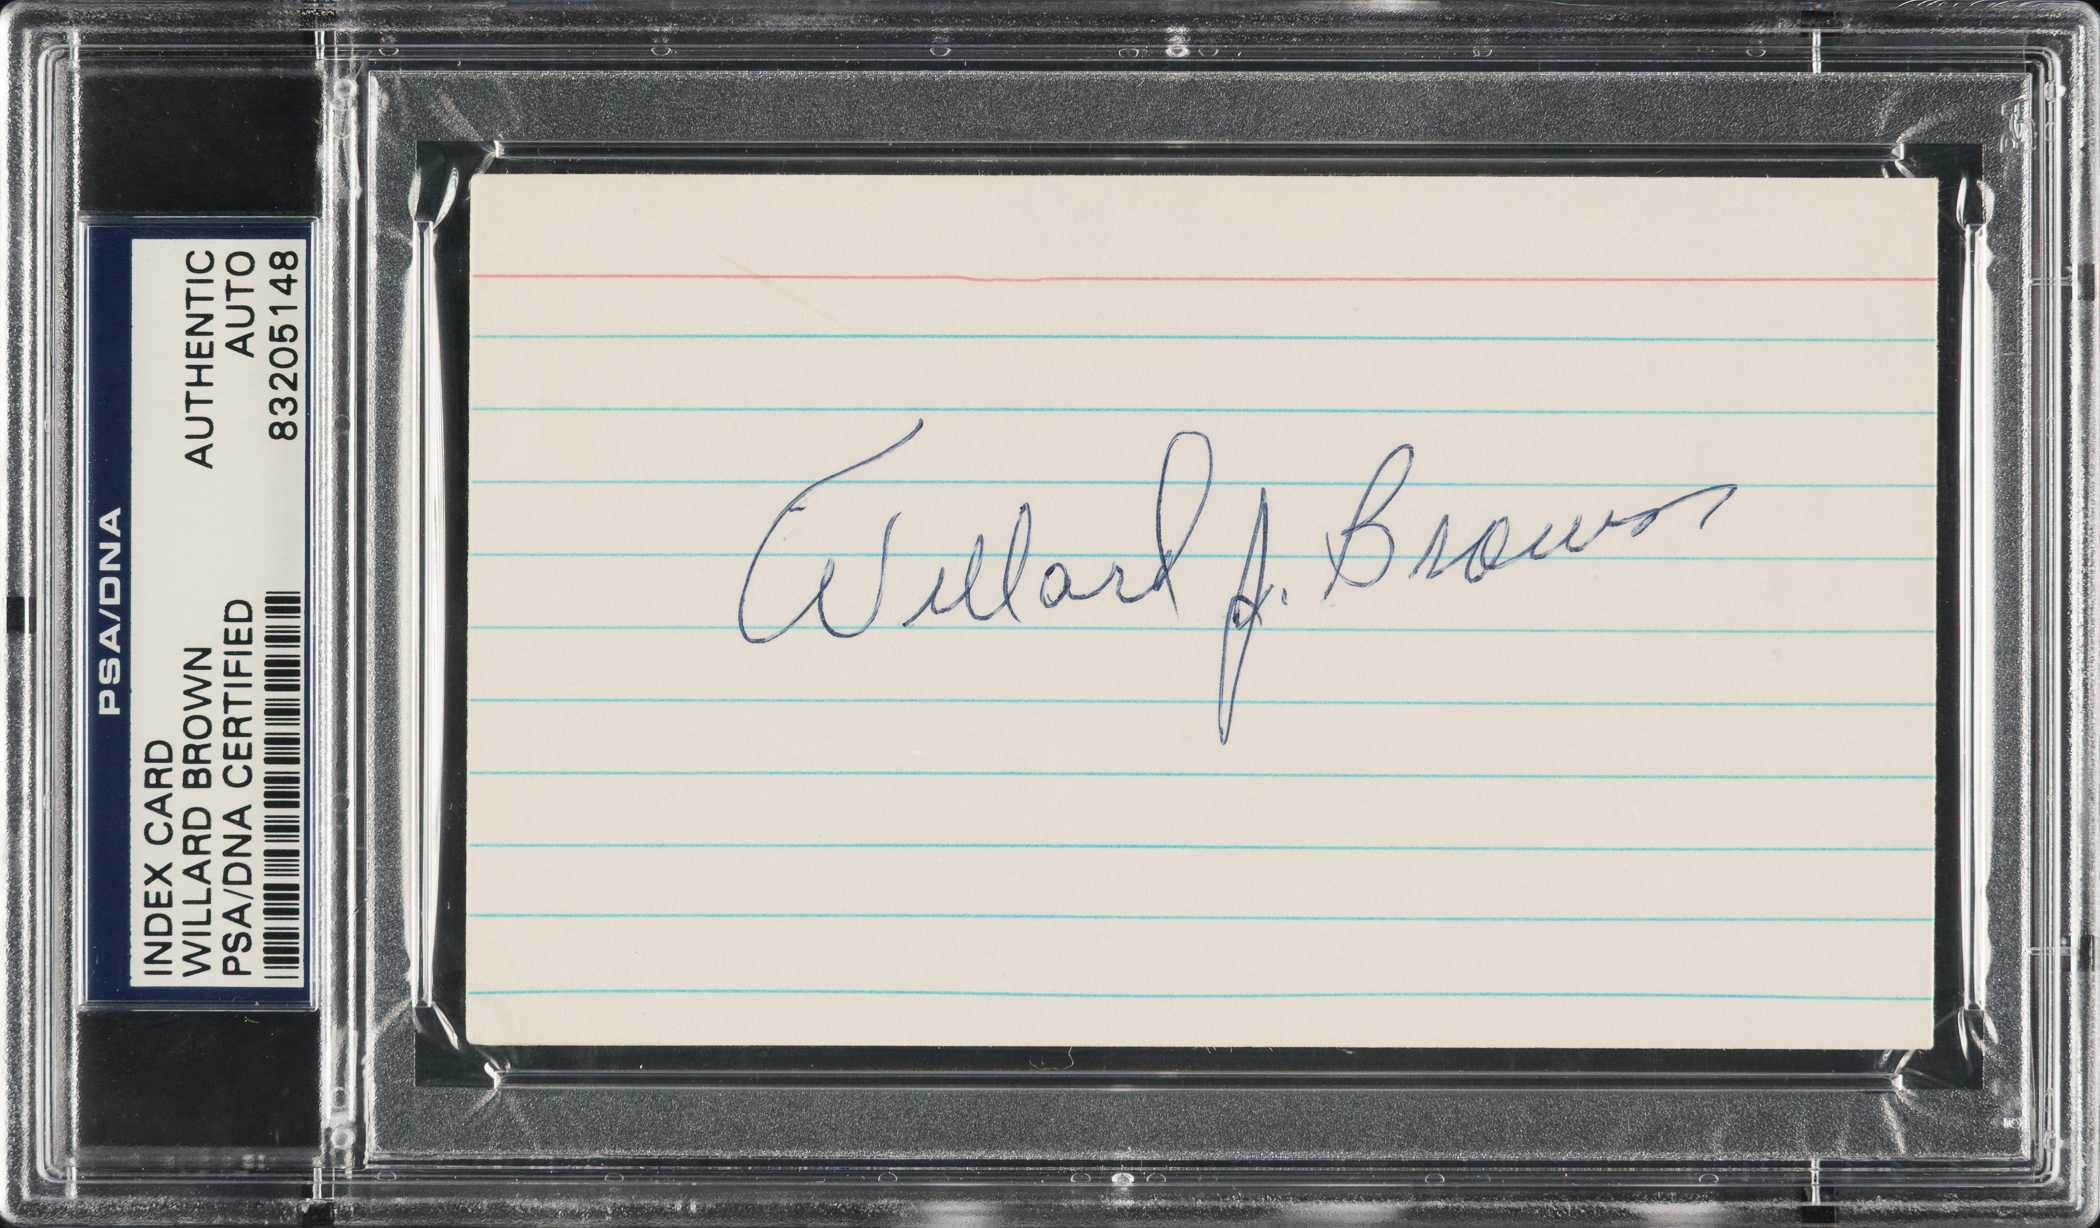 PSA/DNA
INDEX CARD
WILLARD BROWN
PSA/DNA CERTIFIED
AUTHENTIC
AUTO
83205148
Willard J. Brown